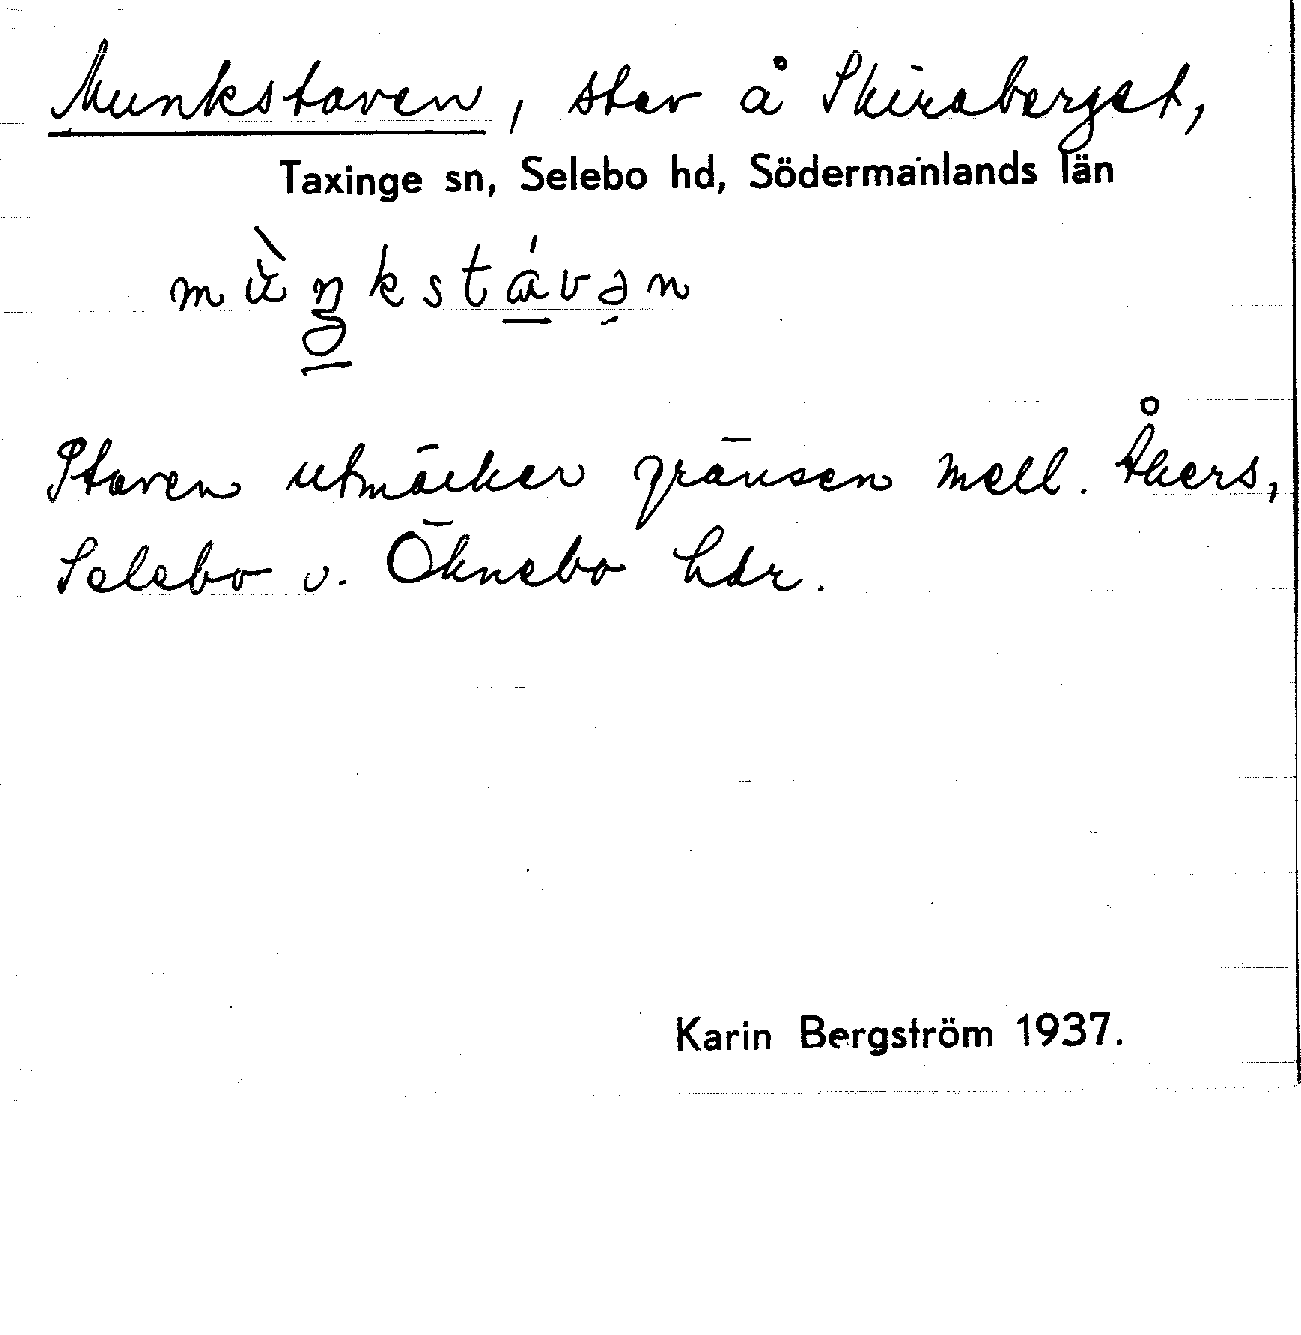 Munkstaven, stav å Skiraberget,
Taxinge sn, Selebo hd, Södermanlands län
mùŋkstávən
Staven utmärker gränsen mell. Åkers,
Selebo o. Öknebo hdr.
Karin Bergström 1937.